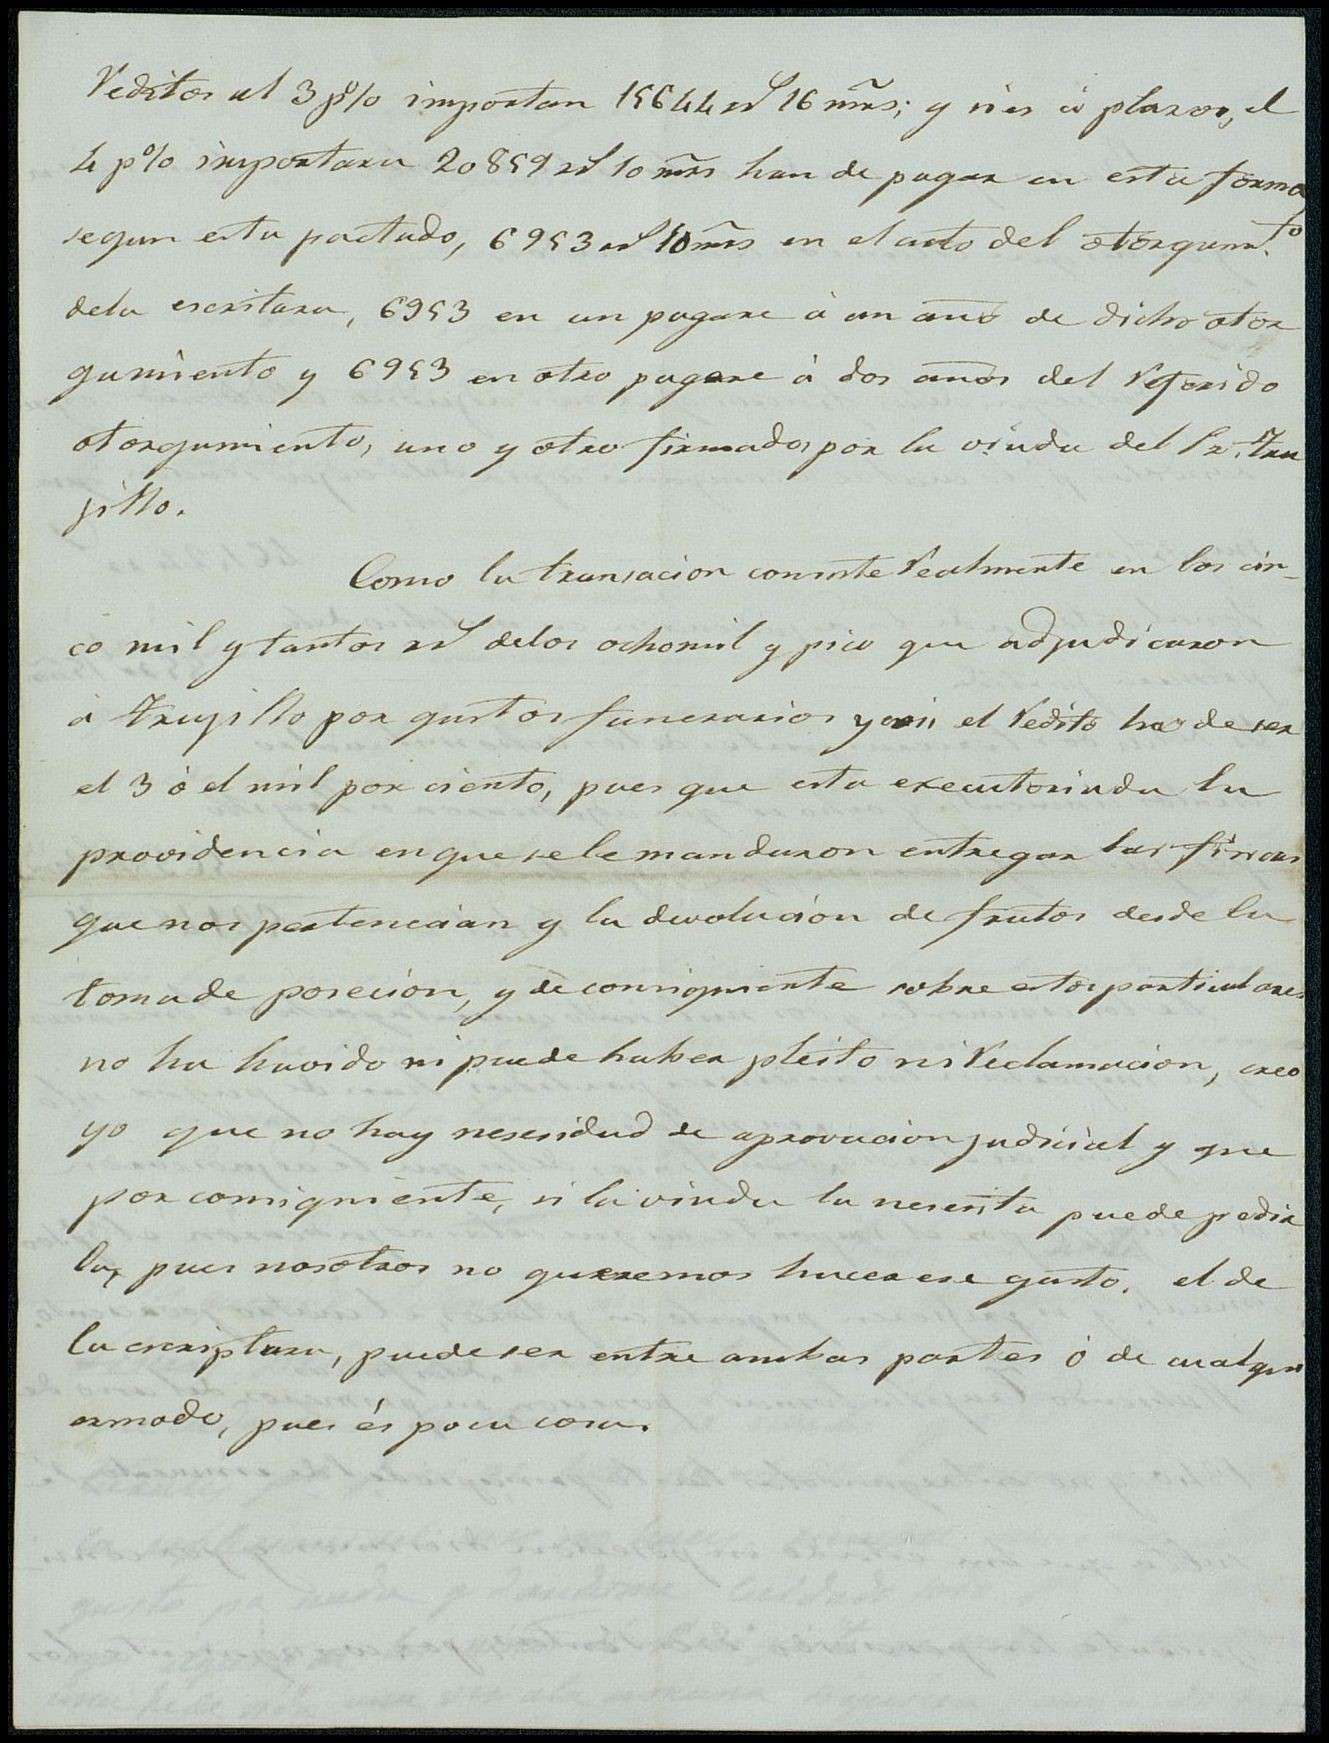 Reditos al 3 p% importan 15644 rs 16 mrs; y si es á plazos, el
4 p% importara 20859 rs 10 mrs han de pagar en esta forma
segun esta pactado, 6953 rs 10 mrs en el acto del otorgam.to
dela escritura, 6953 en un pagare á un año de dicho otor
gamiento y 6953 en otro pagare á dos años del referido
otorgamiento, uno y otro firmados por la viuda del Sr. Tru
jillo.
Como la transacion consiste Realmente en los cin-
co mil y tantos rs delos ochomil y pico que adjudicaron
á Trujillo por gastos funerarios y asi el Redito ha de ser
el 3 ó el mil por ciento, pues que esta executoriada la
providencia en que se le mandaron entregar las fincas
que nos pertenecian y la devolucion de frutos desde la
toma de posecion, y de consiguiente sobre estos particulares
no ha havido ni puede haber pleito ni Reclamacion, creo
yo que no hay nesesidad de aprovacion judicial y que
por consiguiente, si la viuda la nesesita puede pedir
la, pues nosotros no queremos hacer ese gasto. el de
la escriptura, puede ser entre ambas partes ó de cualqui
ermodo, pues és poca cosa.